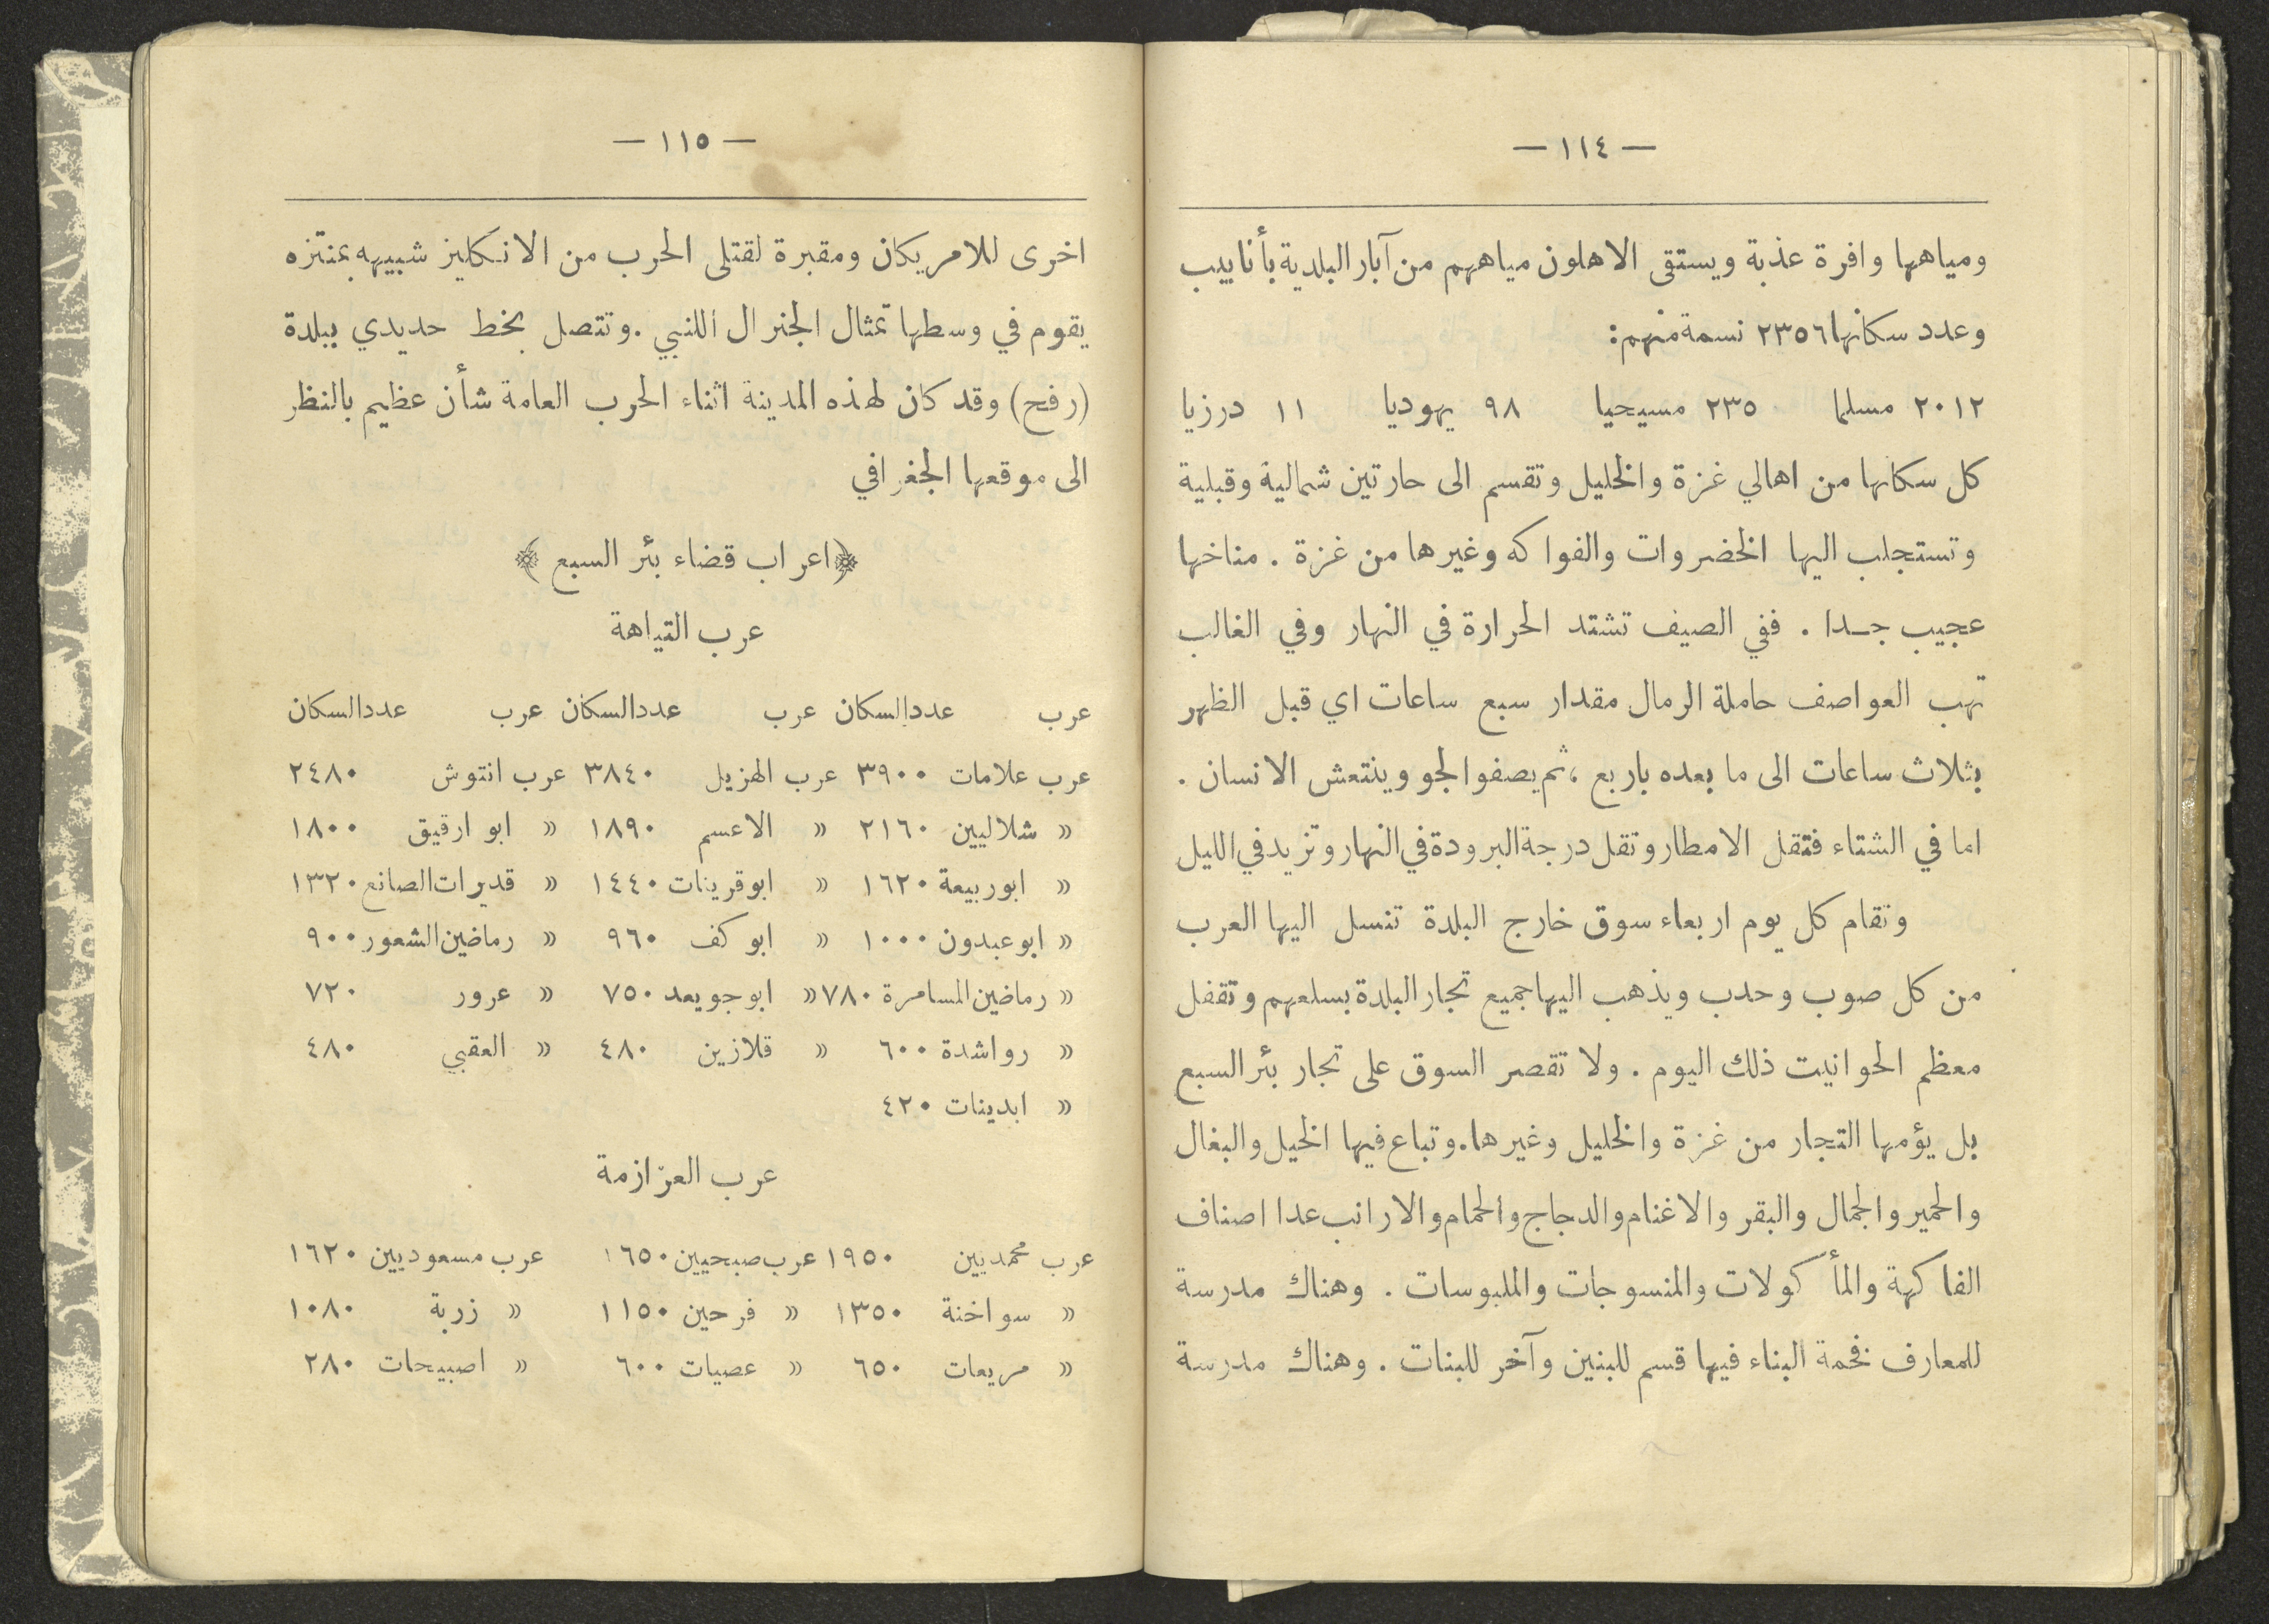 — ١١٤ —
ومياهها وافرة عذبة ويستقى الاهلون مياههم من آبار البلدية بأنابيب
وعدد سكانها ٢٣٥٦ نسمة منهم:
٢٠١٢ مسلما ٢٣٥ مسيحيا ٩٨ يهوديا ١١ درزيا
كل سكانها من اهالي غزة والخليل وتقسم الى حارتين شمالية وقبلية
وتستجلب اليها الخضروات والفواكه وغيرها من غزة . مناخها
عجيب جـدا . ففي الصيف تشتد الحرارة في النهار وفي الغالب
تهب العواصف حاملة الرمال مقدار سبع ساعات اي قبل الظهر
بثلاث ساعات الى ما بعده باربع ، ثم يصفو الجو وينتعش الانسان .
اما في الشتاء فتقل الامطار وتقل درجة البرودة في النهار وتزيد في الليل
وتقام كل يوم اربعاء سوق خارج البلدة تنسل اليها العرب
من كل صوب وحدب ويذهب اليها جميع تجار البلدة بسلعهم وتقفل
معظم الحوانيت ذلك اليوم . ولا تقصر السوق على تجار بئر السبع
بل يؤمها التجار من غزة والخليل وغيرها. وتباع فيها الخيل والبغال
والحمير والجمال والبقر والاغنام والدجاج والحمام والارانب عدا اصناف
الفاكهة والمأكولات والمنسوجات والملبوسات . وهناك مدرسة
للمعارف فخمة البناء فيها قسم للبنين وآخر للبنات . وهناك مدرسة
— ١١٥ —
اخرى للامريكان ومقبرة لقتلى الحرب من الانكليز شبيهه بمنتزه
يقوم في وسطها تمثال الجنرال اللنبي . وتتصل بخط حديدي ببلدة
(رفح) وقد كان لهذه المدينة اثناء الحرب العامة شأن عظيم بالنظر
الى موقعها الجغرافي
﴿اعراب قضاء بئر السبع ﴾
عرب التياهة
عرب عدد السكان عرب عدد السكان عرب عدد السكان
عرب علامات ٣٩٠٠ عرب الهزيل ٣٨٤٠ عرب انتوش ٢٤٨٠
« شلاليين ٢١٦٠ « الاعسم ١٨٩٠ « ابو ارقيق ١٨٠٠
« ابوربيعة ١٦٢٠ « ابوقرينات ١٤٤٠ « قديرات الصانع ١٣٢٠
« ابو عبدون ١٠٠٠ « ابو كف ٩٦٠ « رماضين الشعور ٩٠٠
« رماضين المسامرة ٧٨٠ « ابو جويعد ٧٥٠ « عرور ٧٢٠
« رواشدة ٦٠٠ « قلازين ٤٨٠ « العقبي ٤٨٠
« ابدينات ٤٢٠
عرب العزّازمة
عرب محمديين ١٩٥٠ عرب صبحيين ١٦٥٠ عرب مسعوديين ١٦٢٠
« سواخنة ١٣٥٠ « فرحين ١١٥٠ « زربة ١٠٨٠
« مريعات ٦٥٠ « عصيات ٦٠٠ « اصبيحات ٢٨٠